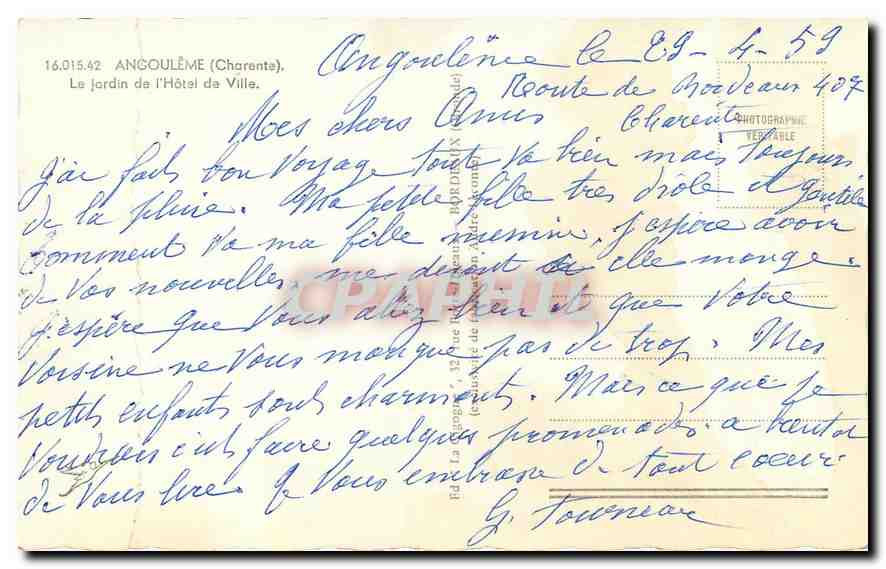 16.015.42 ANGOULÊME (Charente).
Le Jardin de l'Hôtel de Ville.
Angoulême le 29-4-59
Route de Bordeaux 407
Charente
PHOTOGRAPHIE
VÉRITABLE
Mes chers Amis
j'ai fait bon voyage tout va bien mais toujours
de la pluie. Ma petite fille très drôle et gentille
Comment va ma fille mimine, j'espère avoir
de vos nouvelles, me devant elle mange.
j'espère que vous allez bien et que votre
Voisine ne vous manque pas de trop. Mes
petits enfants sont charmants. Mais ce que je
voudrais c'est faire quelques promenades. a bientot
de vous lire. Je vous embrasse de tout coeur
G. Tourneur
CPAPHIL
Edit. La Cigogne, 32 rue BORDEAUX (Gironde)
(exclusivité de fabrication André Leconte)